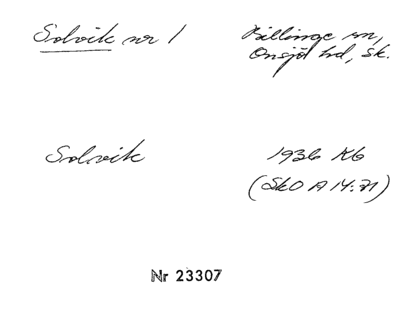 Solvik nr 1
Billinge sn,
Onsjö hd, Sk.
Solvik
1936 Kb
(SkO A 14:71)
Nr 23307